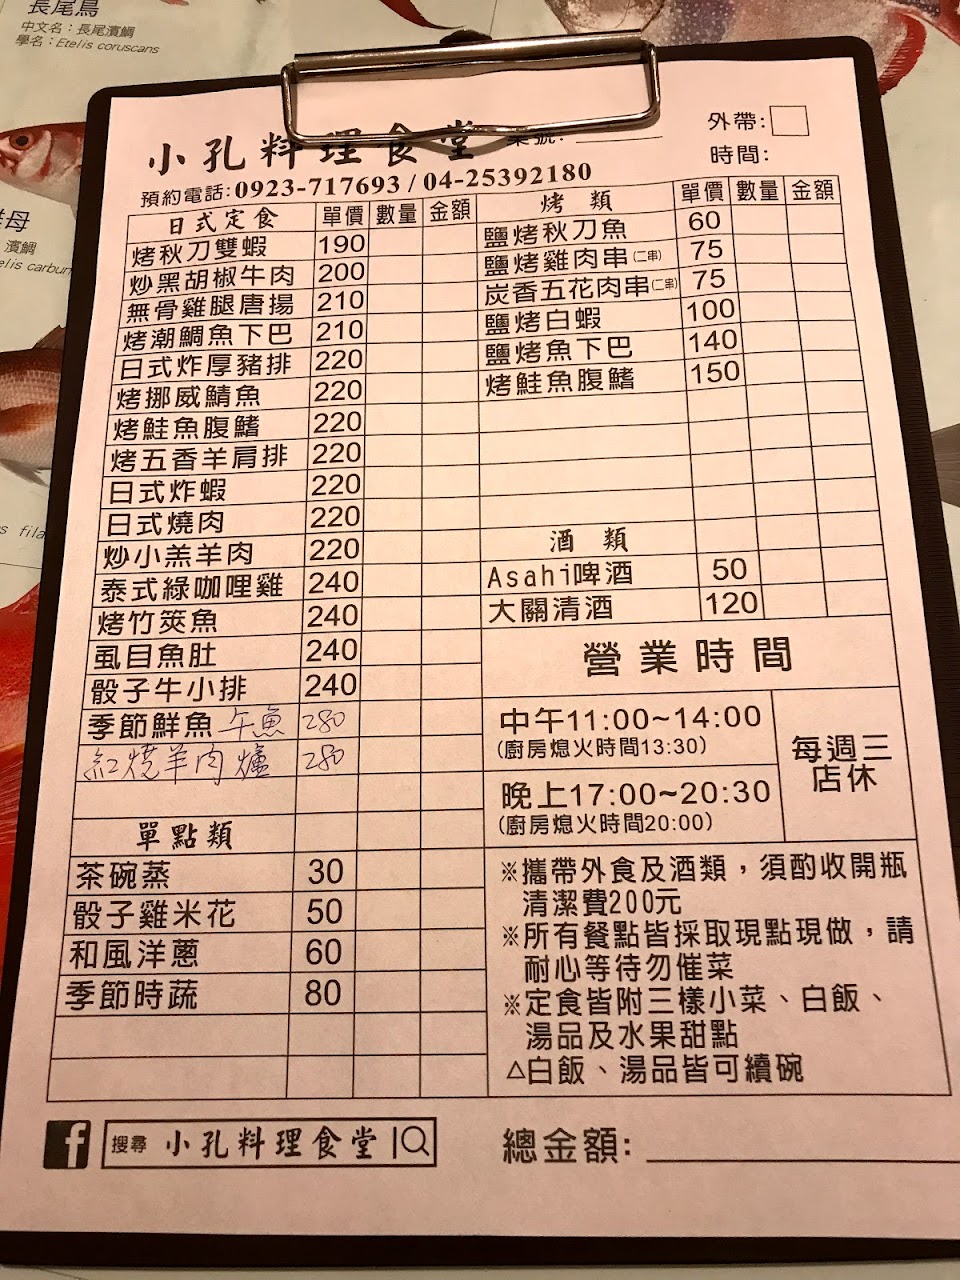 長尾鳥
中文名：長尾濱鯛
學名：Etelis coruscans
母
濱鯛
elis carbun
s fila
小孔料理食堂 桌號: 外帶:
時間:
預約電話:0923-717693 / 04-25392180
日式定食 單價 數量 金額
烤秋刀雙蝦 190
炒黑胡椒牛肉 200
無骨雞腿唐揚 210
烤潮鯛魚下巴 210
日式炸厚豬排 220
烤挪威鯖魚 220
烤鮭魚腹鰭 220
烤五香羊肩排 220
日式炸蝦 220
日式燒肉 220
炒小羔羊肉 220
泰式綠咖哩雞 240
烤竹筴魚 240
虱目魚肚 240
骰子牛小排 240
季節鮮魚 午魚 280
紅燒羊肉爐 280
單點類
茶碗蒸 30
骰子雞米花 50
和風洋蔥 60
季節時蔬 80
烤 類 單價 數量 金額
鹽烤秋刀魚 60
鹽烤雞肉串(二串) 75
炭香五花肉串(二串) 75
鹽烤白蝦 100
鹽烤魚下巴 140
烤鮭魚腹鰭 150
酒 類
Asahi啤酒 50
大關清酒 120
營業時間
中午11:00~14:00
(廚房熄火時間13:30)
晚上17:00~20:30
(廚房熄火時間20:00)
每週三
店休
※攜帶外食及酒類，須酌收開瓶
清潔費200元
※所有餐點皆採取現點現做，請
耐心等待勿催菜
※定食皆附三樣小菜、白飯、
湯品及水果甜點
△白飯、湯品皆可續碗
f 搜尋 小孔料理食堂
總金額: